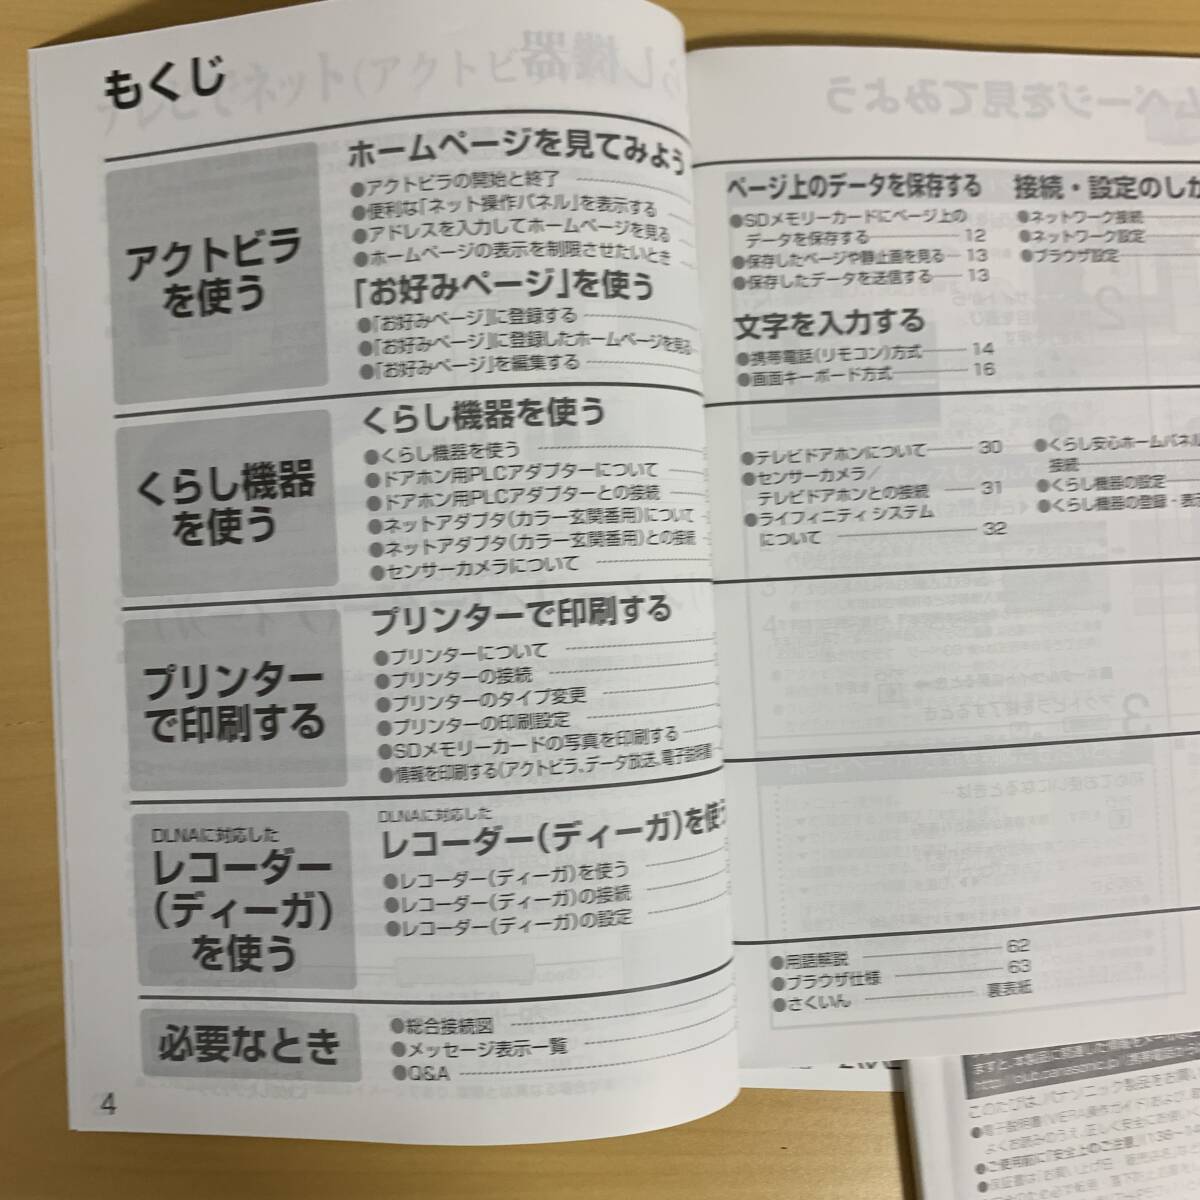 もくじ
アクトビラ
を使う
ホームページを見てみよう
●アクトビラの開始と終了
●便利な「ネット操作パネル」を表示する
●アドレスを入力してホームページを見る
●ホームページの表示を制限させたいとき
「お好みページ」を使う
●「お好みページ」に登録する
●「お好みページ」に登録したホームページを見る
●「お好みページ」を編集する
ページ上のデータを保存する
●SDメモリーカードにページ上の
データを保存する 12
●保存したページや静止画を見る 13
●保存したデータを送信する 13
文字を入力する
●携帯電話(リモコン)方式 14
●画面キーボード方式 16
接続・設定のしか
●ネットワーク接続
●ネットワーク設定
●ブラウザ設定
くらし機器
を使う
くらし機器を使う
●くらし機器を使う
●ドアホン用PLCアダプターについて
●ドアホン用PLCアダプターとの接続
●ネットアダプタ(カラー玄関番用)について
●ネットアダプタ(カラー玄関番用)との接続
●センサーカメラについて
●テレビドアホンについて 30
●センサーカメラ/
テレビドアホンとの接続 31
●ライフィニティ システム
について 32
●くらし安心ホームパネル
接続
●くらし機器の設定
●くらし機器の登録・表
プリンター
で印刷する
プリンターで印刷する
●プリンターについて
●プリンターの接続
●プリンターのタイプ変更
●プリンターの印刷設定
●SDメモリーカードの写真を印刷する
●情報を印刷する(アクトビラ、データ放送、電子説明書
DLNAに対応した
レコーダー
(ディーガ)
を使う
DLNAに対応した
レコーダー(ディーガ)を使う
●レコーダー(ディーガ)を使う
●レコーダー(ディーガ)の接続
●レコーダー(ディーガ)の設定
必要なとき
●総合接続図
●メッセージ表示一覧
●Q&A
●用語解説 62
●ブラウザ仕様 63
●さくいん 裏表紙
4
http://club.panasonic.jp/
このたびは、パナソニック製品をお買い
●電子説明書(VIERA操作ガイド)および
よくお読みのうえ、正しく安全にお使い
●ご使用前に「安全上のご注意」